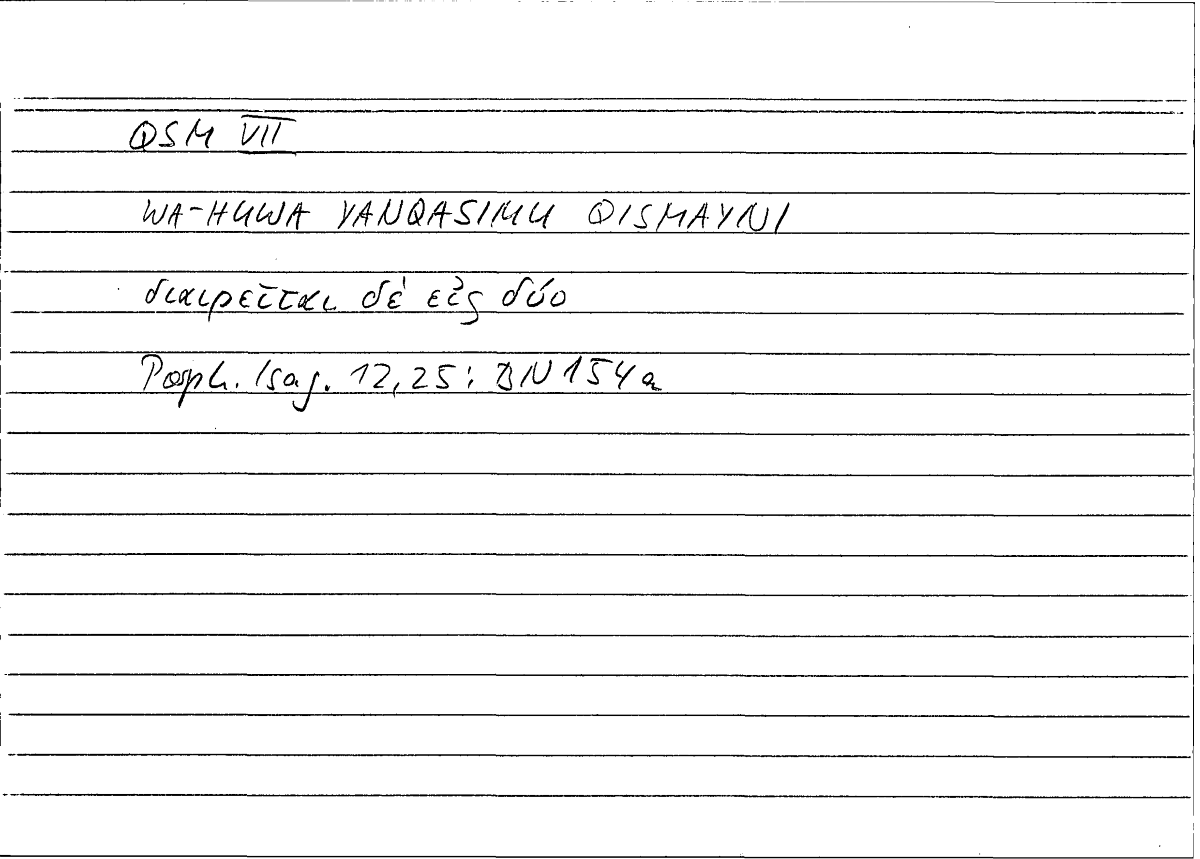 QSM VII
WA-HUWA YANQASIMU QISMAYNI
διαιρεῖται δὲ εἰς δύο
Porph. Isag. 12,25: BN 154a